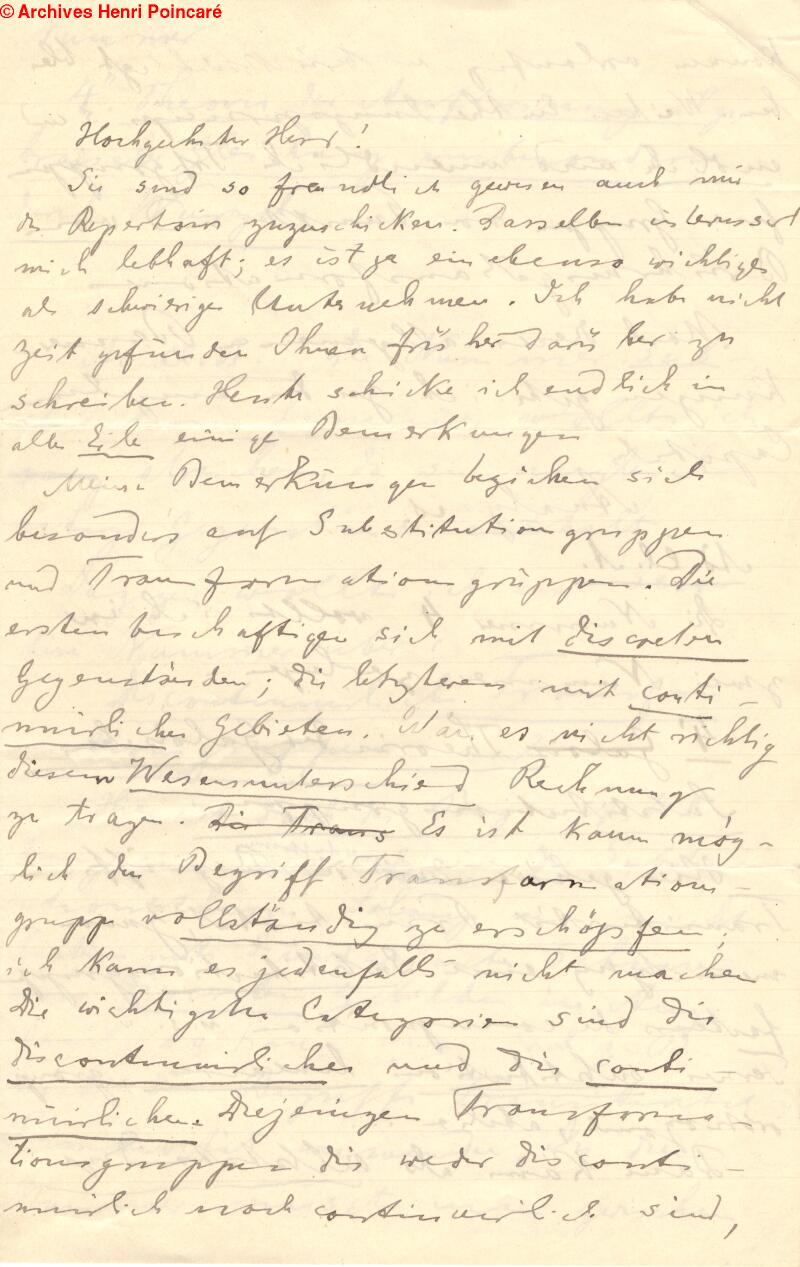 © Archives Henri Poincaré
Hochgeehrter Herr!
Sie sind so freundlich gewesen auch mir
das Repertoire zuzuschicken. Dasselbe interessirt
mich lebhaft; es ist ja ein ebenso wichtiges
als schwieriges Unternehmen. Ich habe nicht
Zeit gefunden Ihnen früher darüber zu
schreiben. Heute schicke ich endlich in
aller Eile einige Bemerkungen
Meine Bemerkungen beziehen sich
besonders auf Substitutionsgruppen
und Transformationsgruppen. Die
ersten beschäftigen sich mit discreten
Gegenständen; die letzteren mit conti-
nuirlichen Gebieten. Wäre es nicht richtig
diesem Wesensunterschied Rechnung
zu tragen. Die Trans Es ist kaum mög-
lich den Begriff Transformations-
gruppe vollständig zu erschöpfen;
ich kann es jedenfalls nicht machen
Die wichtigsten Categorien sind die
discontinuirlichen und die conti-
nuirlichen. Diejenigen Transforma-
tionsgruppen die weder disconti-
nuirlich noch continuirlich sind,